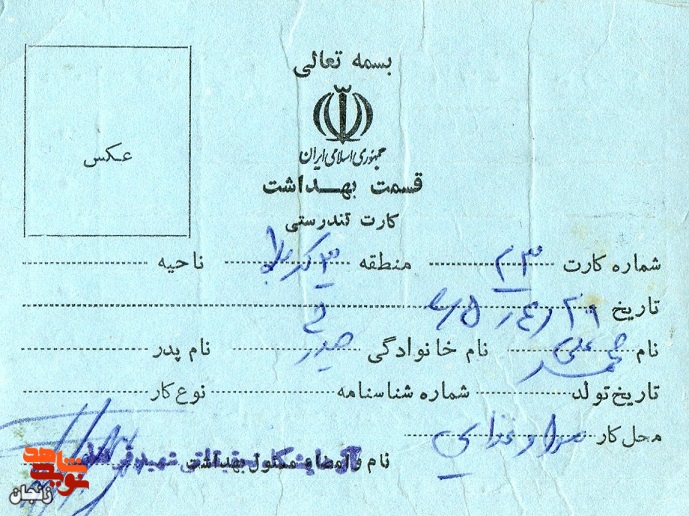 بسمه تعالی
جمهوری اسلامی ایران
قسمت بهداشت
کارت تندرستی
عکس
شماره کارت ۲۳ منطقه ۳ کربلا ناحیه
تاریخ
نام محمد علی نام خانوادگی حیدر نام پدر
تاریخ تولد شماره شناسنامه نوع کار
محل کار مواد غذایی
نام و امضاء مسئول بهداشت
نوید شاهد
زنجان